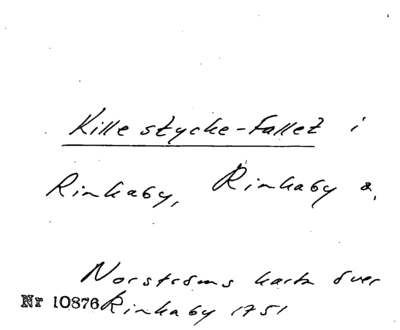 Kille stycke-fallet i
Rinkaby, Rinkaby s.
Norströms karta över
Nr 10876 Rinkaby 1751